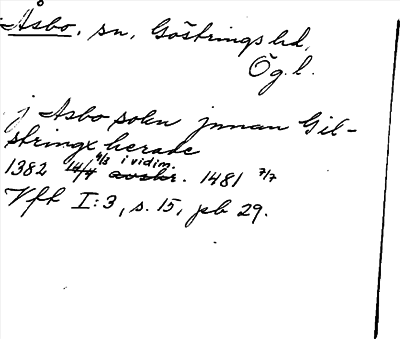 Åsbo, sn, Göstrings hd,
Ög. l.
j Asbo sokn jnnan Gil-
stringx herade
1382 14/4 4/3 i vidim. avskr. 1481 7/7
Vfk I:3, s. 15, pb 29.